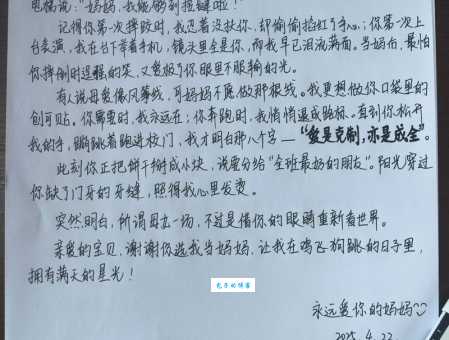 电梯说："妈妈,我能够到按键啦!"
记得你第一次摔跤时,我忍着没扶你,却偷偷掐红了手心;你第一次上
台表演,我在台下举着手机,镜头里全是你,而我早已泪流满面。当妈的,最怕
你摔倒时逞强的笑,又爱极了你眼里不服输的光。
有人说母爱像风筝线,可妈妈不愿做那根线。我更想做你口袋里的
创可贴。你需要时,我永远在;你奔跑时,我悄悄退成路标。直到你松开
我的手,蹦跳着跑进校门,我才明白那八个字——"爱是克制,亦是成全"。
此刻你正把饼干掰成小块,说要分给"全班最好的朋友"。阳光穿过
你缺了门牙的牙缝,照得我心里发烫。
突然明白,所谓母女一场,不过是借你的眼睛重新看世界。
亲爱的宝贝,谢谢你选我当妈妈,让我在鸡飞狗跳的日子里,
拥有满天的星光!
永远爱你的妈妈
2025.4.22